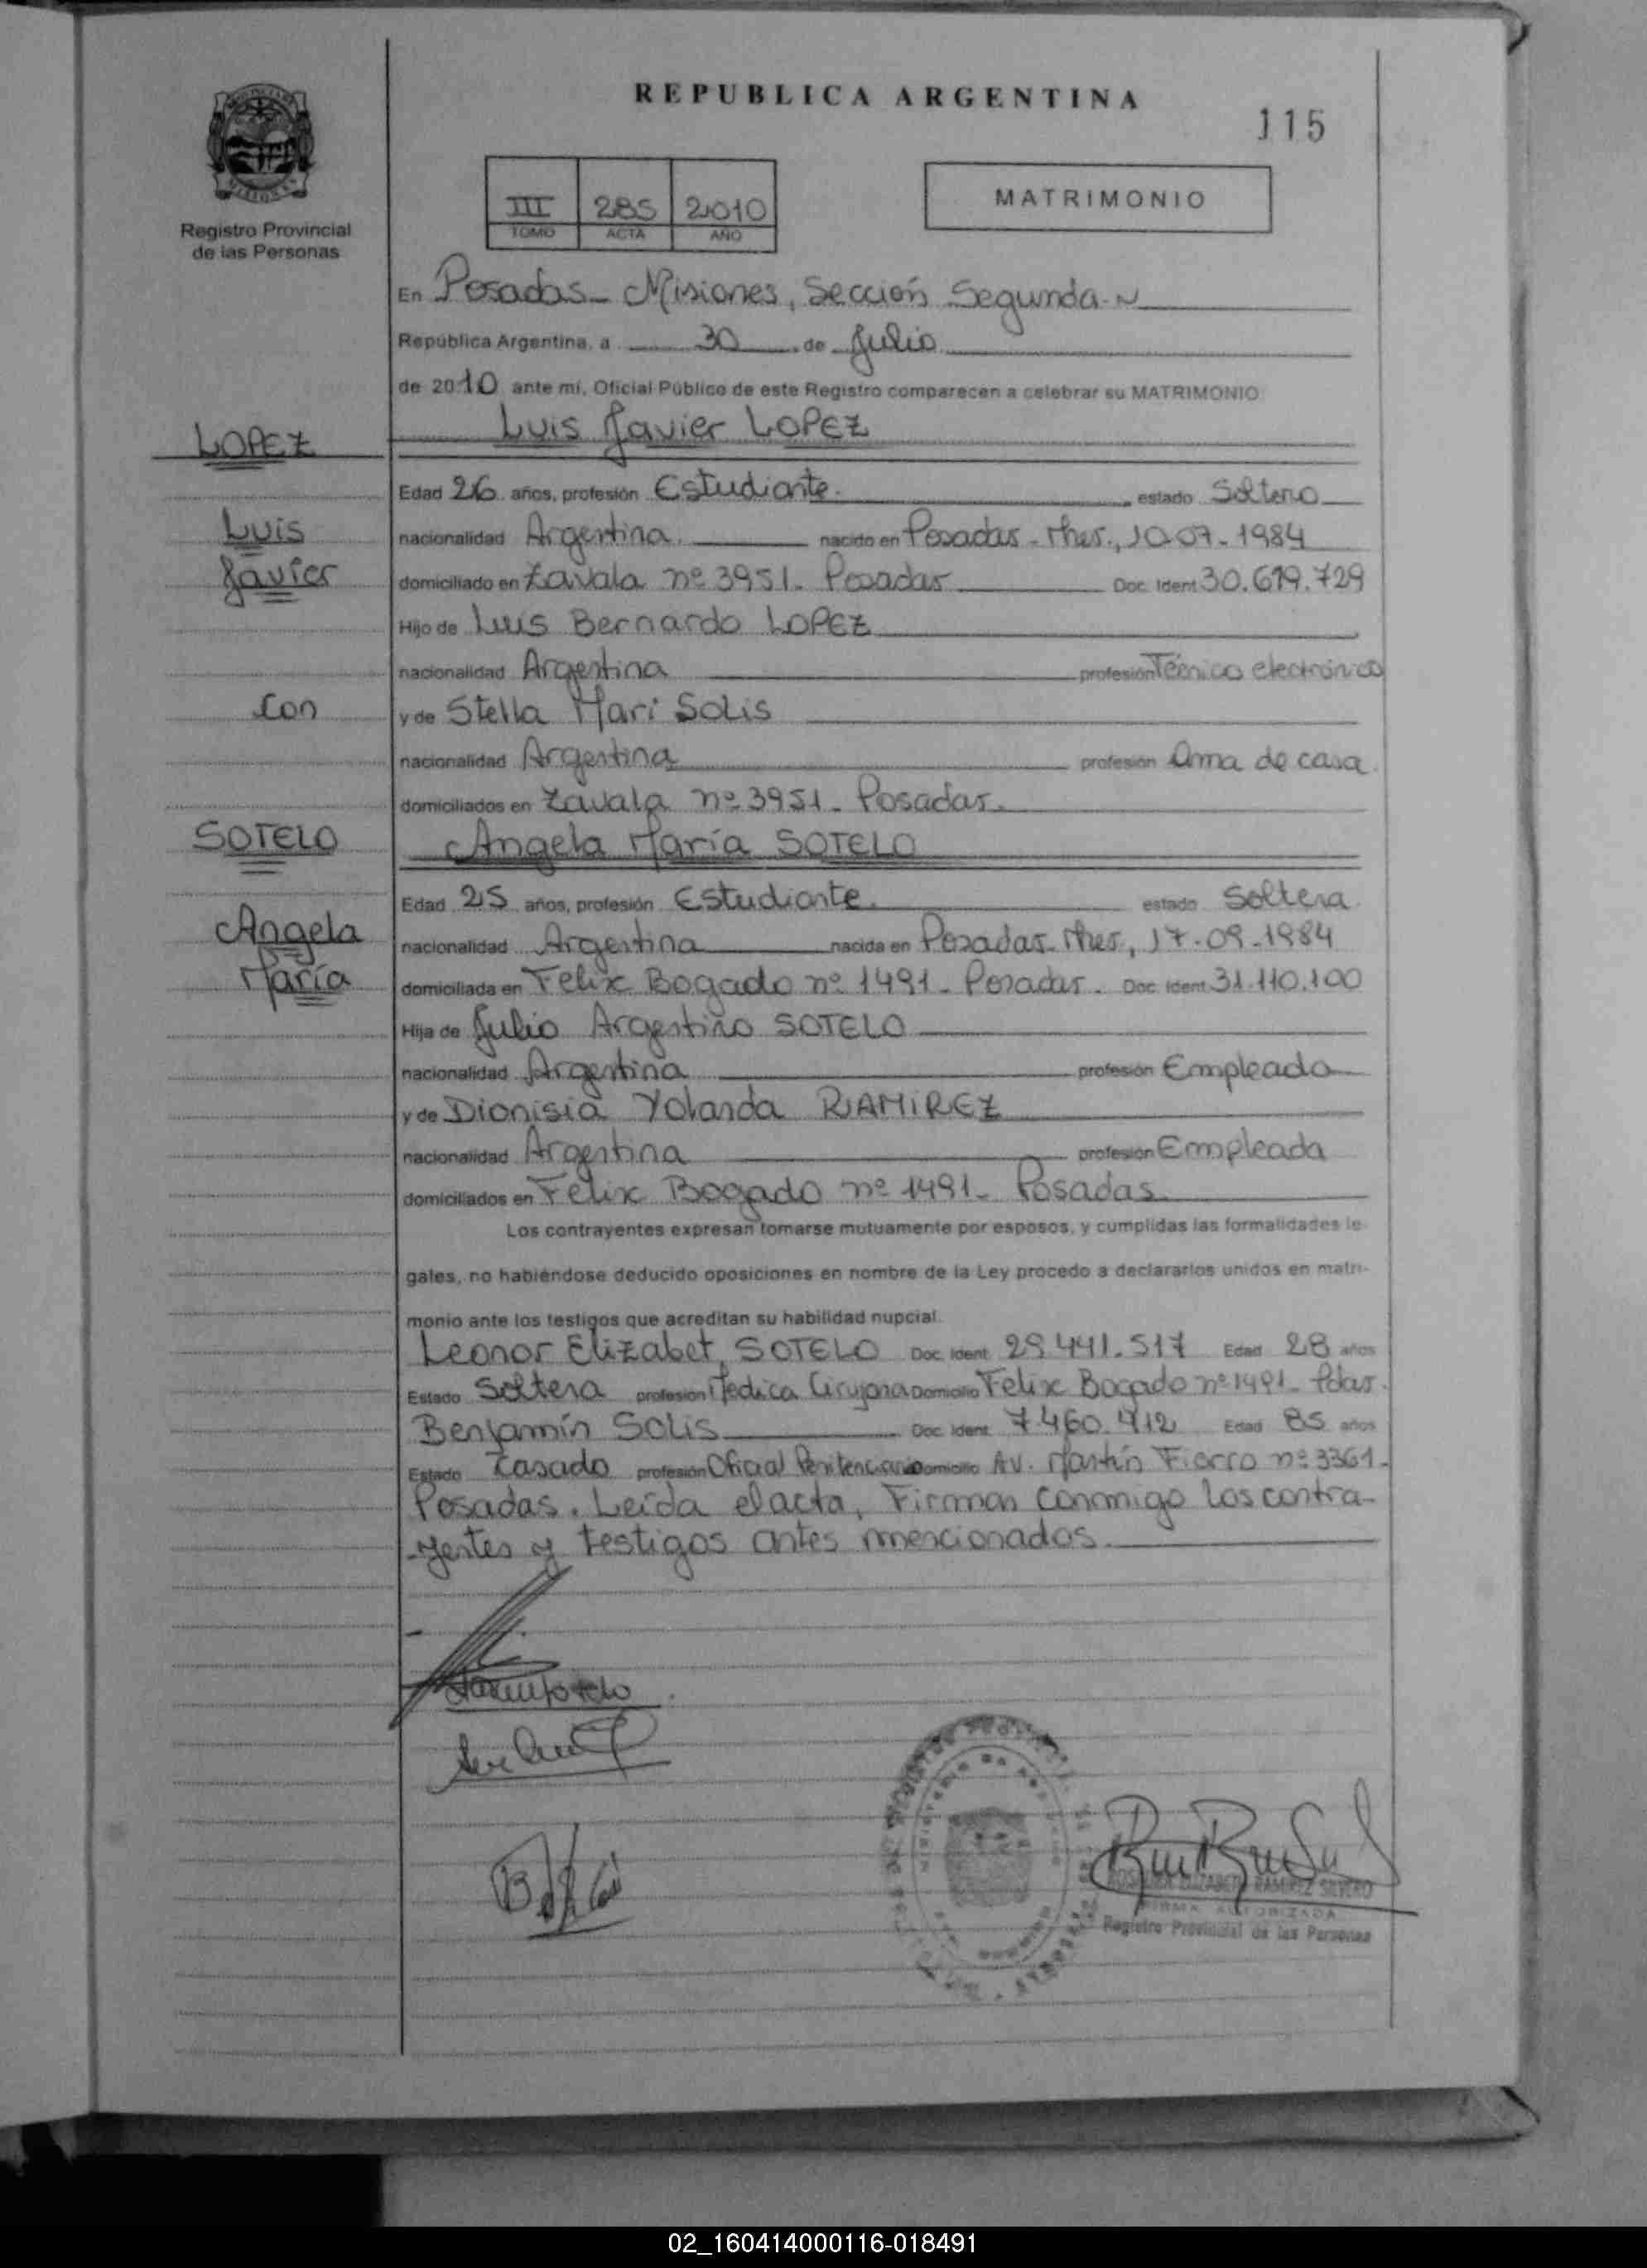 REPUBLICA ARGENTINA
115
Registro Provincial
de las Personas
III 285 2010
TOMO ACTA AÑO
MATRIMONIO
En Posadas - Misiones, Sección Segunda.
República Argentina, a 30 de Julio
de 2010 ante mí, Oficial Público de este Registro comparecen a celebrar su MATRIMONIO
LOPEZ
Luis Javier LOPEZ
Edad 26 años, profesión Estudiante. estado Soltero
Luis
nacionalidad Argentina. nacido en Posadas - Mnes., 10-07-1984
Javier
domiciliado en Zavala nº 3951. Posadas Doc. Ident 30.619.729
Hijo de Luis Bernardo LOPEZ
nacionalidad Argentina profesión Técnico electrónico
Con
y de Stella Mari SOLIS
nacionalidad Argentina profesión Ama de casa.
domiciliados en Zavala nº 3951. Posadas.
SOTELO
Angela María SOTELO
Edad 25 años, profesión Estudiante. estado Soltera.
Angela
nacionalidad Argentina nacida en Posadas. Mnes, 17-09-1984
María
domiciliada en Felix Bogado nº 1491. Posadas. Doc. Ident 31.110.100
Hija de Julio Argentino SOTELO
nacionalidad Argentina profesión Empleado
y de Dionisia Yolanda RAMIREZ
nacionalidad Argentina profesión Empleada
domiciliados en Felix Bogado nº 1491. Posadas
Los contrayentes expresan tomarse mutuamente por esposos, y cumplidas las formalidades le-
gales, no habiéndose deducido oposiciones en nombre de la Ley procedo a declararlos unidos en matri-
monio ante los testigos que acreditan su habilidad nupcial.
Leonor Elizabet SOTELO Doc. Ident. 29.441.517 Edad 28 años
Estado Soltera profesión Medica Cirujana Domicilio Felix Bogado nº 1491. Pdas.
Benjamín SOLIS Doc. Ident. 7.460.412 Edad 85 años
Estado Casado profesión Oficial Penitenciario Domicilio AV. Martín Fierro nº 3361.
Posadas. Leída el acta, Firman conmigo los contra-
-yentes y testigos antes mencionados.
ELIZABETH RAMIREZ SILVERO
FIRMA AUTORIZADA
Registro Provincial de las Personas
02_160414000116-018491